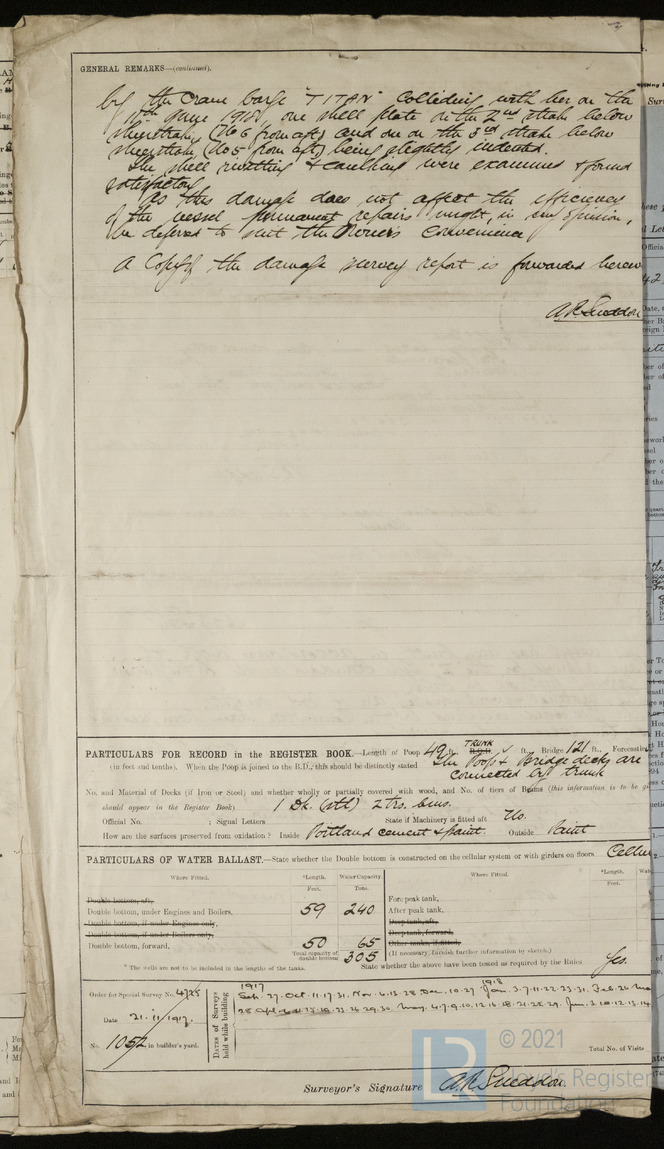 GENERAL REMARKS—(continued).
by the Crane barge "TITAN" Colliding with her on the
11th June 1918, one shell plate in the 2nd strake below
sheerstrake (No 6 from aft) and one on the 3rd strake below
sheerstrake (No 5 from aft) being slightly indented.
The shell rivetting & caulking were examined & found
satisfactory
As this damage does not affect the efficiency
of the vessel permanent repairs might, in my opinion,
be deferred to suit the Owner's convenience
A Copy of the damage survey report is forwarded
A.R. Sneddon
PARTICULARS FOR RECORD in the REGISTER BOOK.—Length of Poop 49 ft., TRUNK R.Q.D. ft., Bridge 121 ft., Forecastle
(in feet and tenths). When the Poop is joined to the B.D., this should be distinctly stated The Poop & Bridge decks are
connected by trunk
No. and Material of Decks (if Iron or Steel) and whether wholly or partially covered with wood, and No. of tiers of Beams (this information is to be
should appear in the Register Book) 1 Dk. (stl) 2 trs. bms.
Official No. ; Signal Letters State if Machinery is fitted aft No.
How are the surfaces preserved from oxidation? Inside Portland cement & paint. Outside Paint
PARTICULARS OF WATER BALLAST.—State whether the Double bottom is constructed on the cellular system or with girders on floors
Where Fitted. *Length. Water Capacity. Where Fitted. *Length.
Feet. Tons. Feet.
Double bottom, aft, Fore peak tank,
Double bottom, under Engines and Boilers, 59 240 After peak tank,
Double bottom, if under Engines only, Deep tank, aft,
Double bottom, if under Boilers only, Deep tank, forward,
Double bottom, forward, 50 65 Other tanks, if fitted,
Total capacity of double bottom 305 (If necessary, furnish further information by sketch.)
* The wells are not to be included in the lengths of the tanks. State whether the above have been tested as required by the Rules Yes.
Order for Special Survey No. 4725
Date 21.11.1917.
No. 1052 in builder's yard.
Dates of Surveys held while building
1917 1918
Sep. 27. Oct. 11.17.31. Nov. 6.13.28 Dec. 10.27 Jan. 3.7.11.22.23.31. Feb. 26
Total No. of Visits
Surveyor's Signature A.R. Sneddon.
© 2021
LR
Lloyd's Register
Foundation